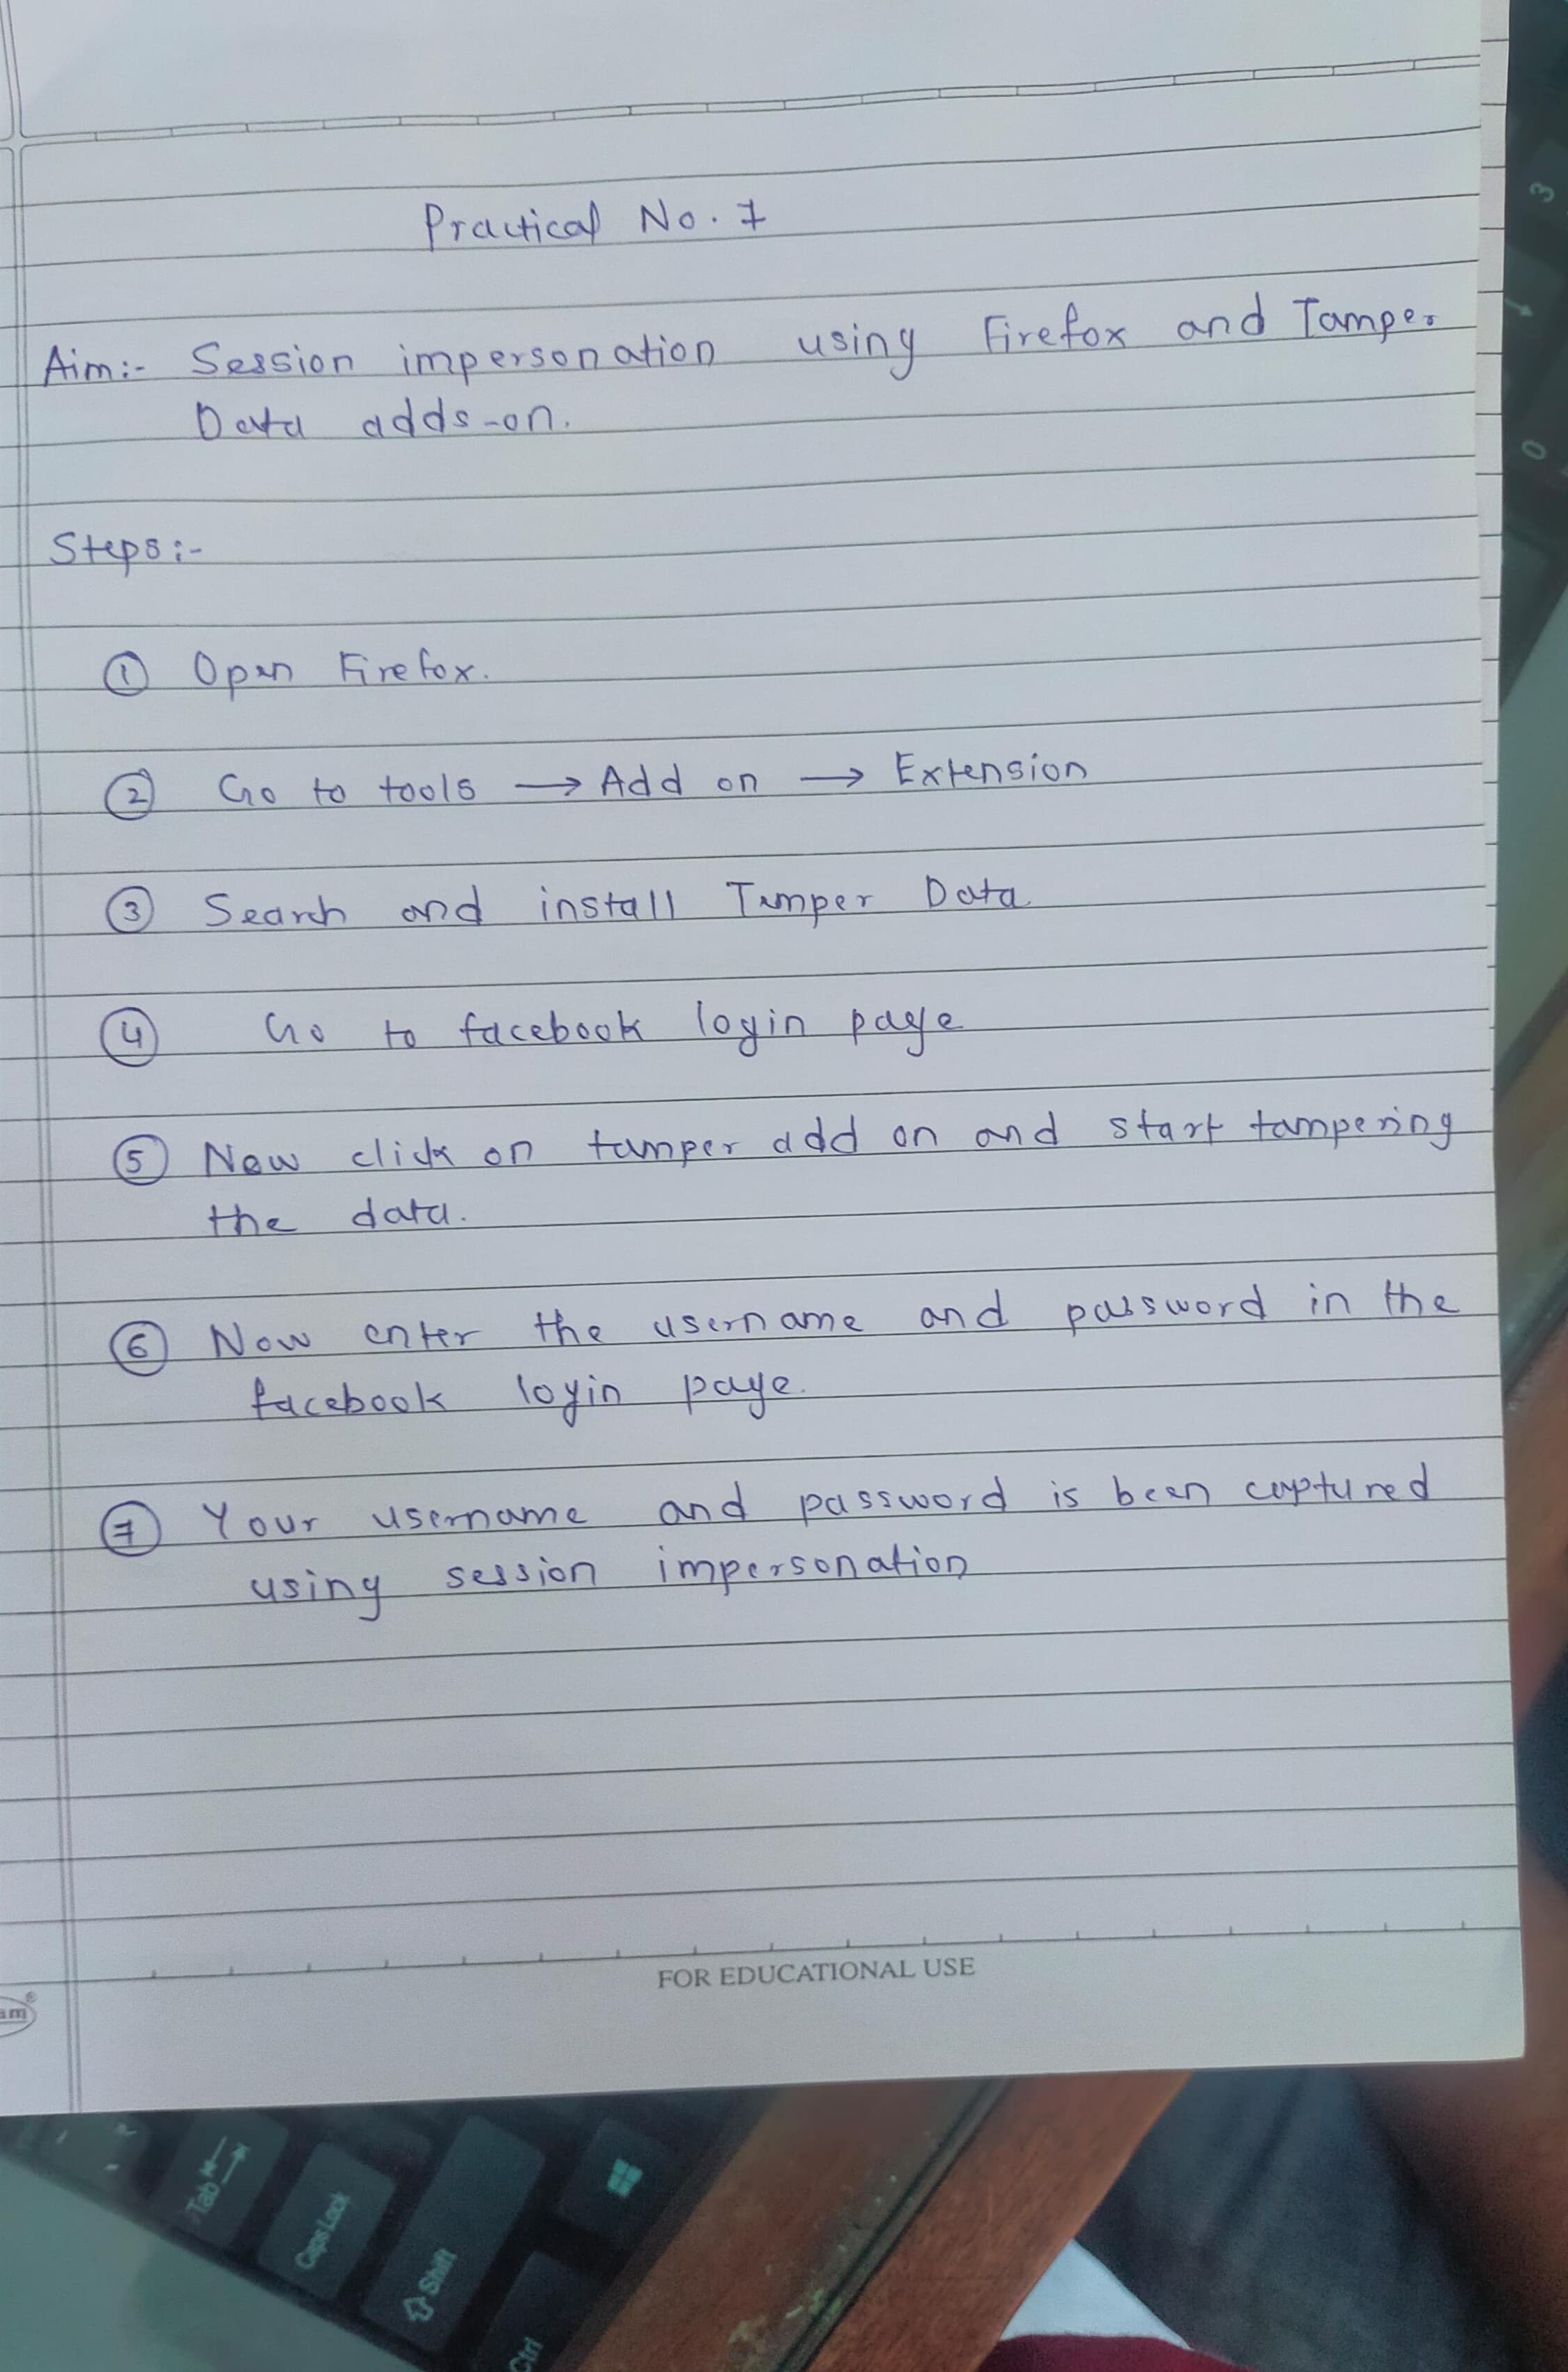 Practical No. 7
Aim:- Session impersonation using Firefox and Tamper
Data adds-on.
Steps:-
① Open Firefox.
② Go to tools → Add on → Extension
③ Search and install Tamper Data
④ Go to facebook login page
⑤ Now click on tamper add on and start tampering
the data.
⑥ Now enter the username and password in the
facebook login page.
⑦ Your username and password is been captured
using session impersonation
FOR EDUCATIONAL USE
am®
Tab
Caps Lock
Shift
Ctrl
3
0